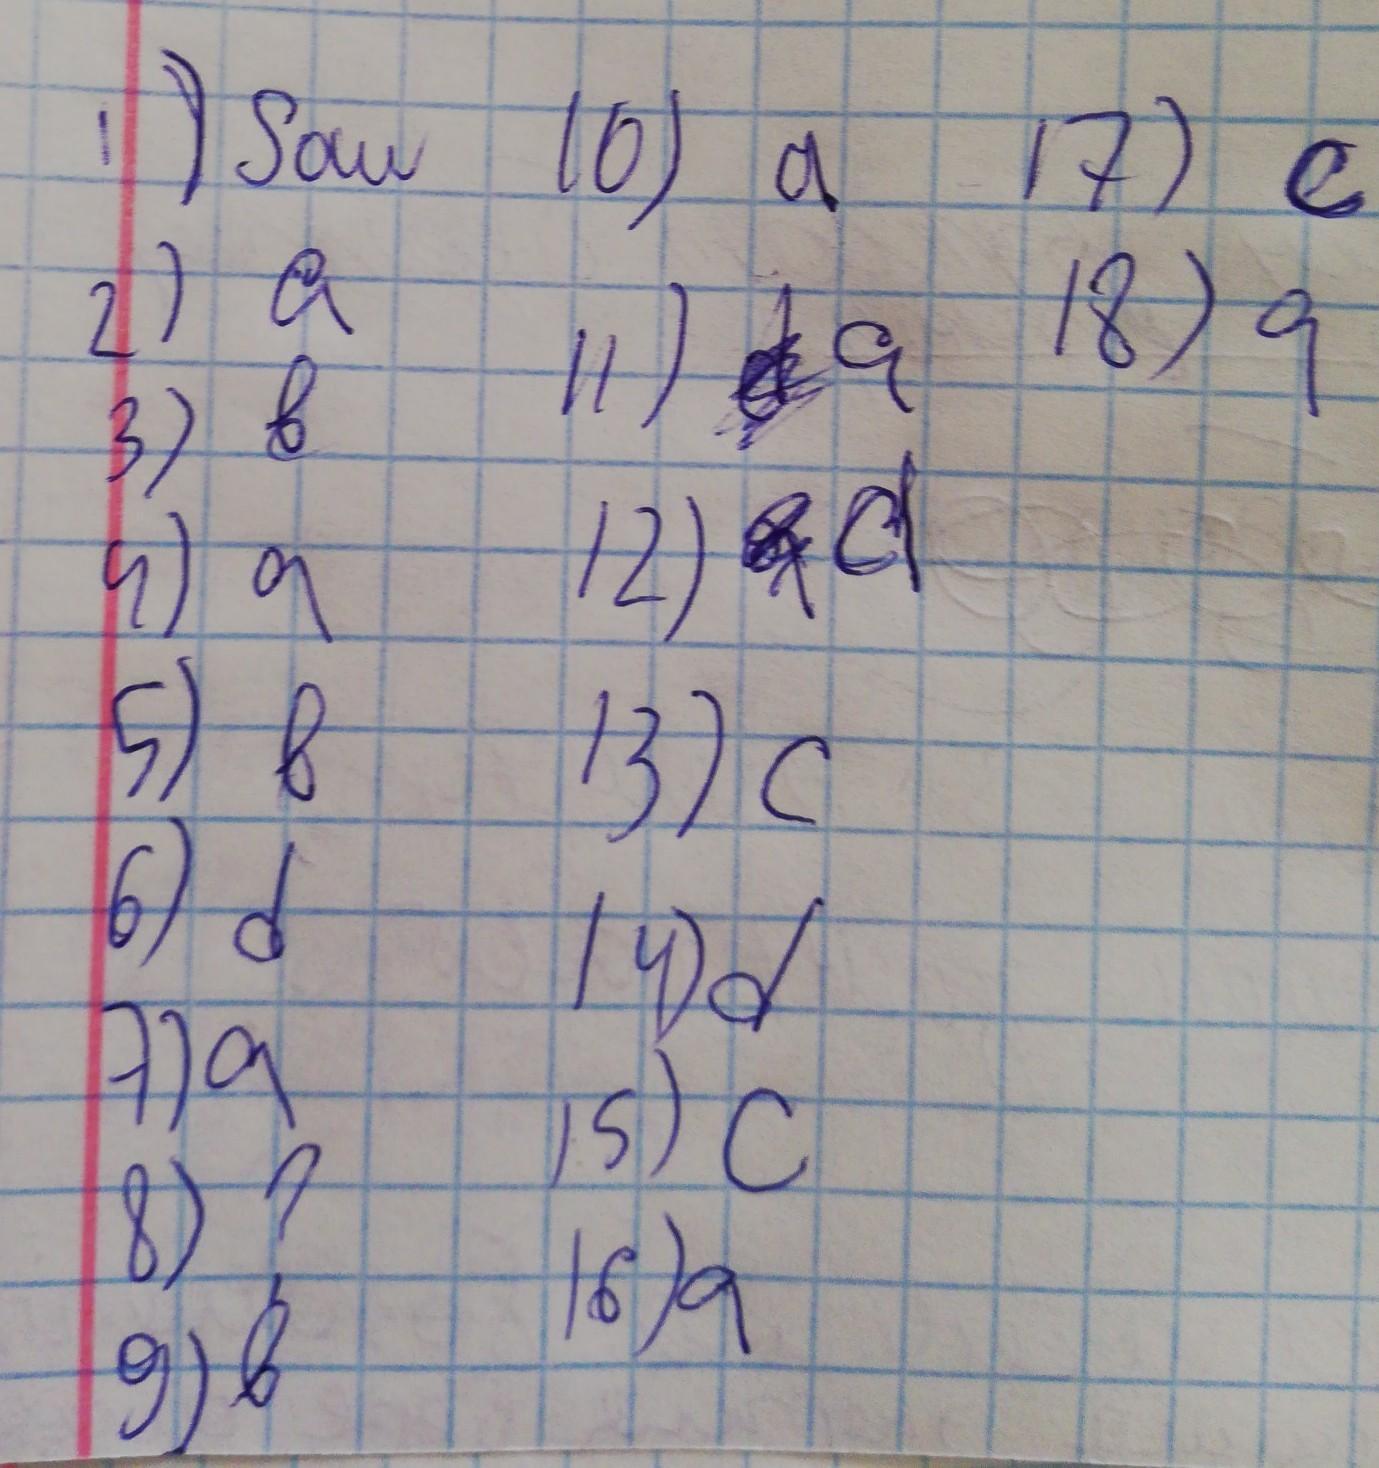 1) Saw
2) a
3) b
4) a
5) b
6) d
7) a
8) ?
9) b
10) a
11) a
12) d
13) c
14) d
15) C
16) a
17) c
18) a